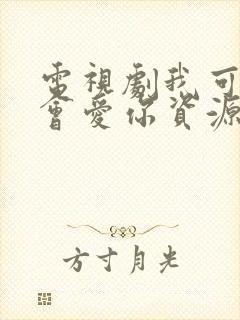 電視劇我可
會愛你資源
方寸月光